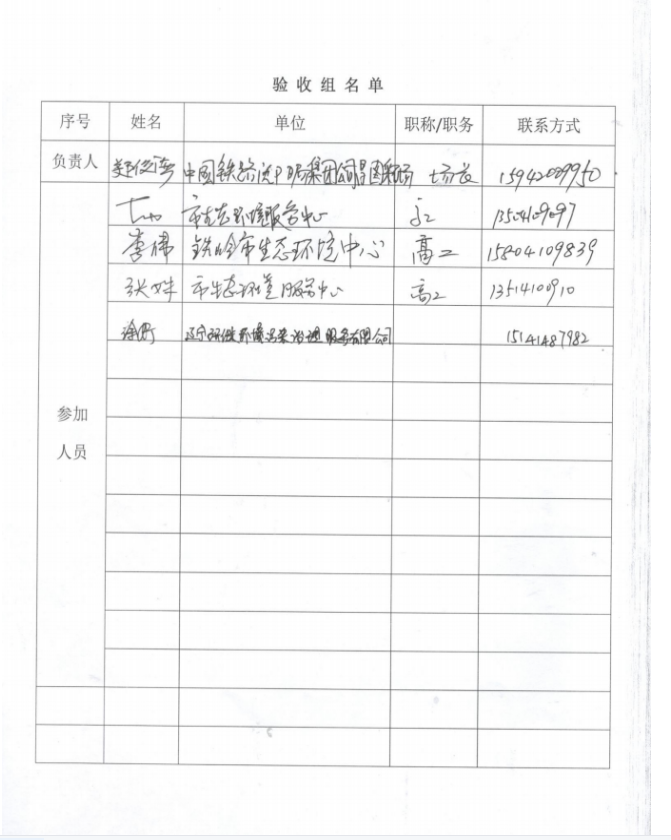 验收组名单
序号 姓名 单位 职称/职务 联系方式
负责人 中国铁路沈阳局集团公司昌图 场长 15942009950
市生态环境服务中心 高工 13504109097
李伟 铁岭市生态环境中心 高工 15804109839
张 市生态环境服务中心 高工 1351410910
涂 辽宁环 环境污染治理服务有限公司 15141487982
参加
人员